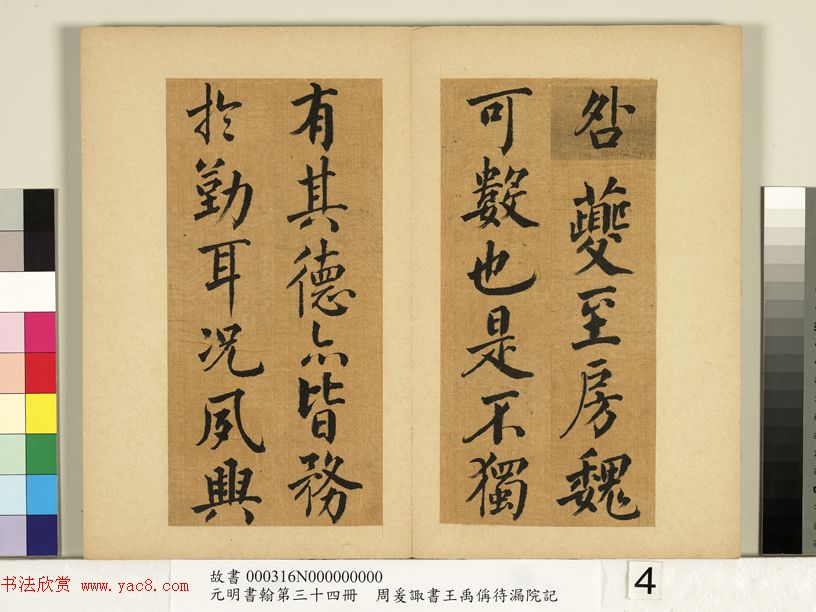 咎夔至房魏
可數也是不獨
有其德亦皆務
扵勤耳况夙興
故書 000316N000000000
元明書翰第三十四冊 周爰諏書王禹偁待漏院記
4
书法欣赏 www.yac8.com